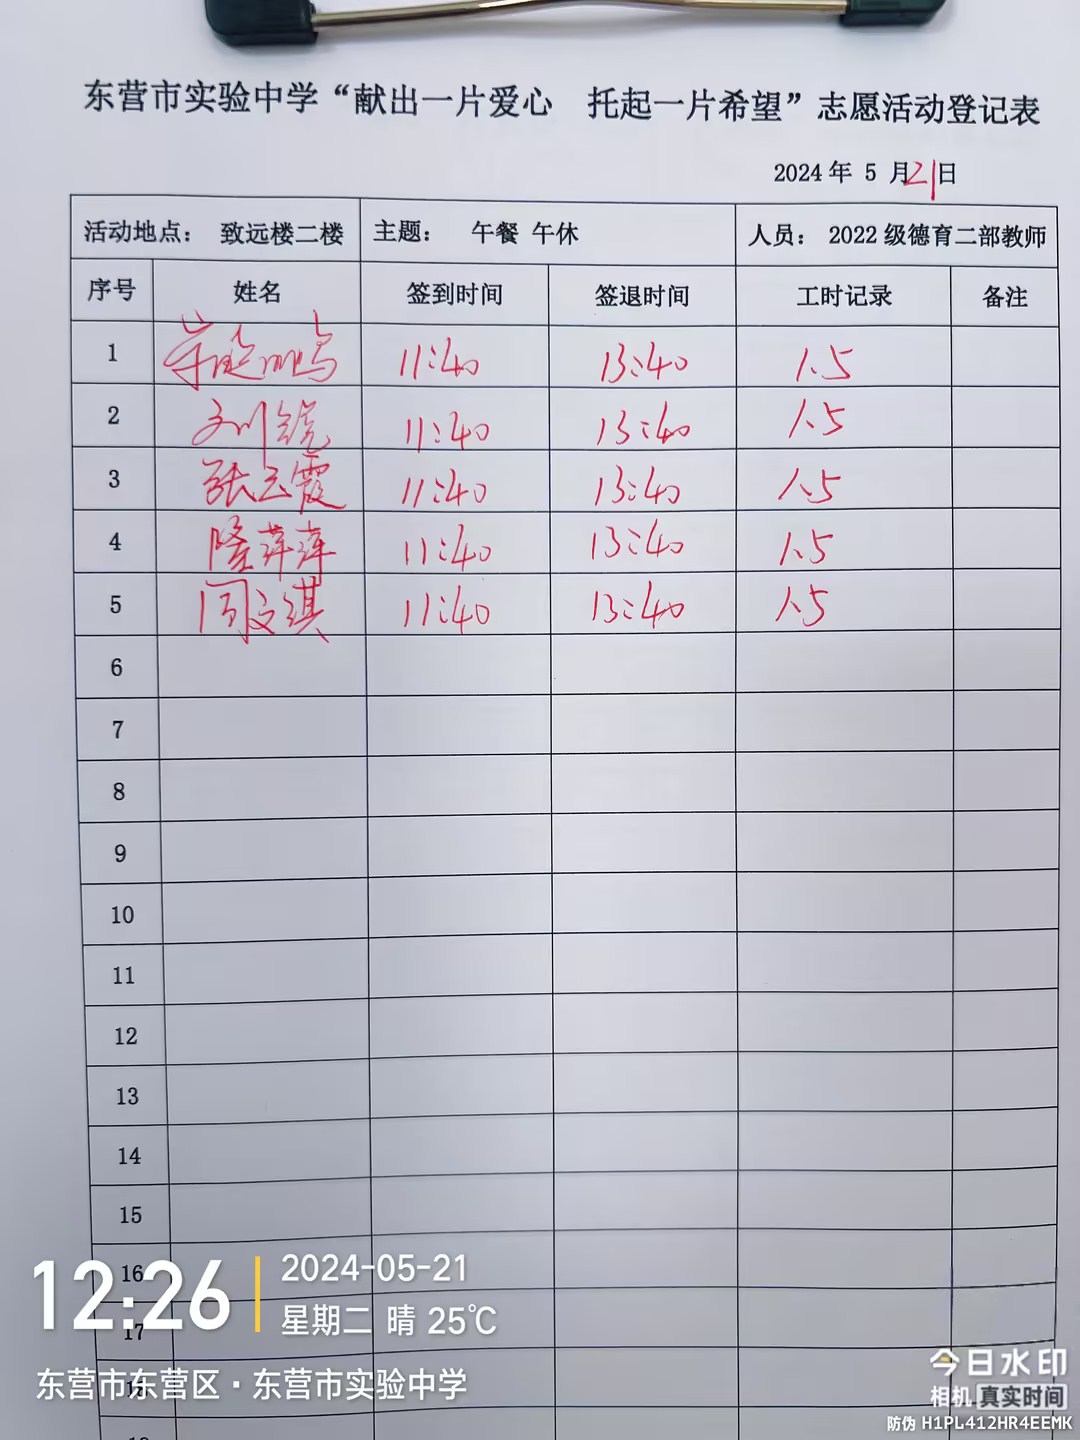 东营市实验中学“献出一片爱心 托起一片希望”志愿活动登记表
2024年 5 月21日
活动地点: 致远楼二楼 主题: 午餐 午休 人员: 2022 级德育二部教师
序号 姓名 签到时间 签退时间 工时记录 备注
1 11:40 13:40 1.5
2 11:40 13:40 1.5
3 张云霞 11:40 13:40 1.5
4 隆萍萍 11:40 13:40 1.5
5 闫文淇 11:40 13:40 1.5
6
7
8
9
10
11
12
13
14
15
16
17
12:26
2024-05-21
星期二 晴 25℃
东营市东营区·东营市实验中学
今日水印
相机 真实时间
防伪 H1PL412HR4EEMK